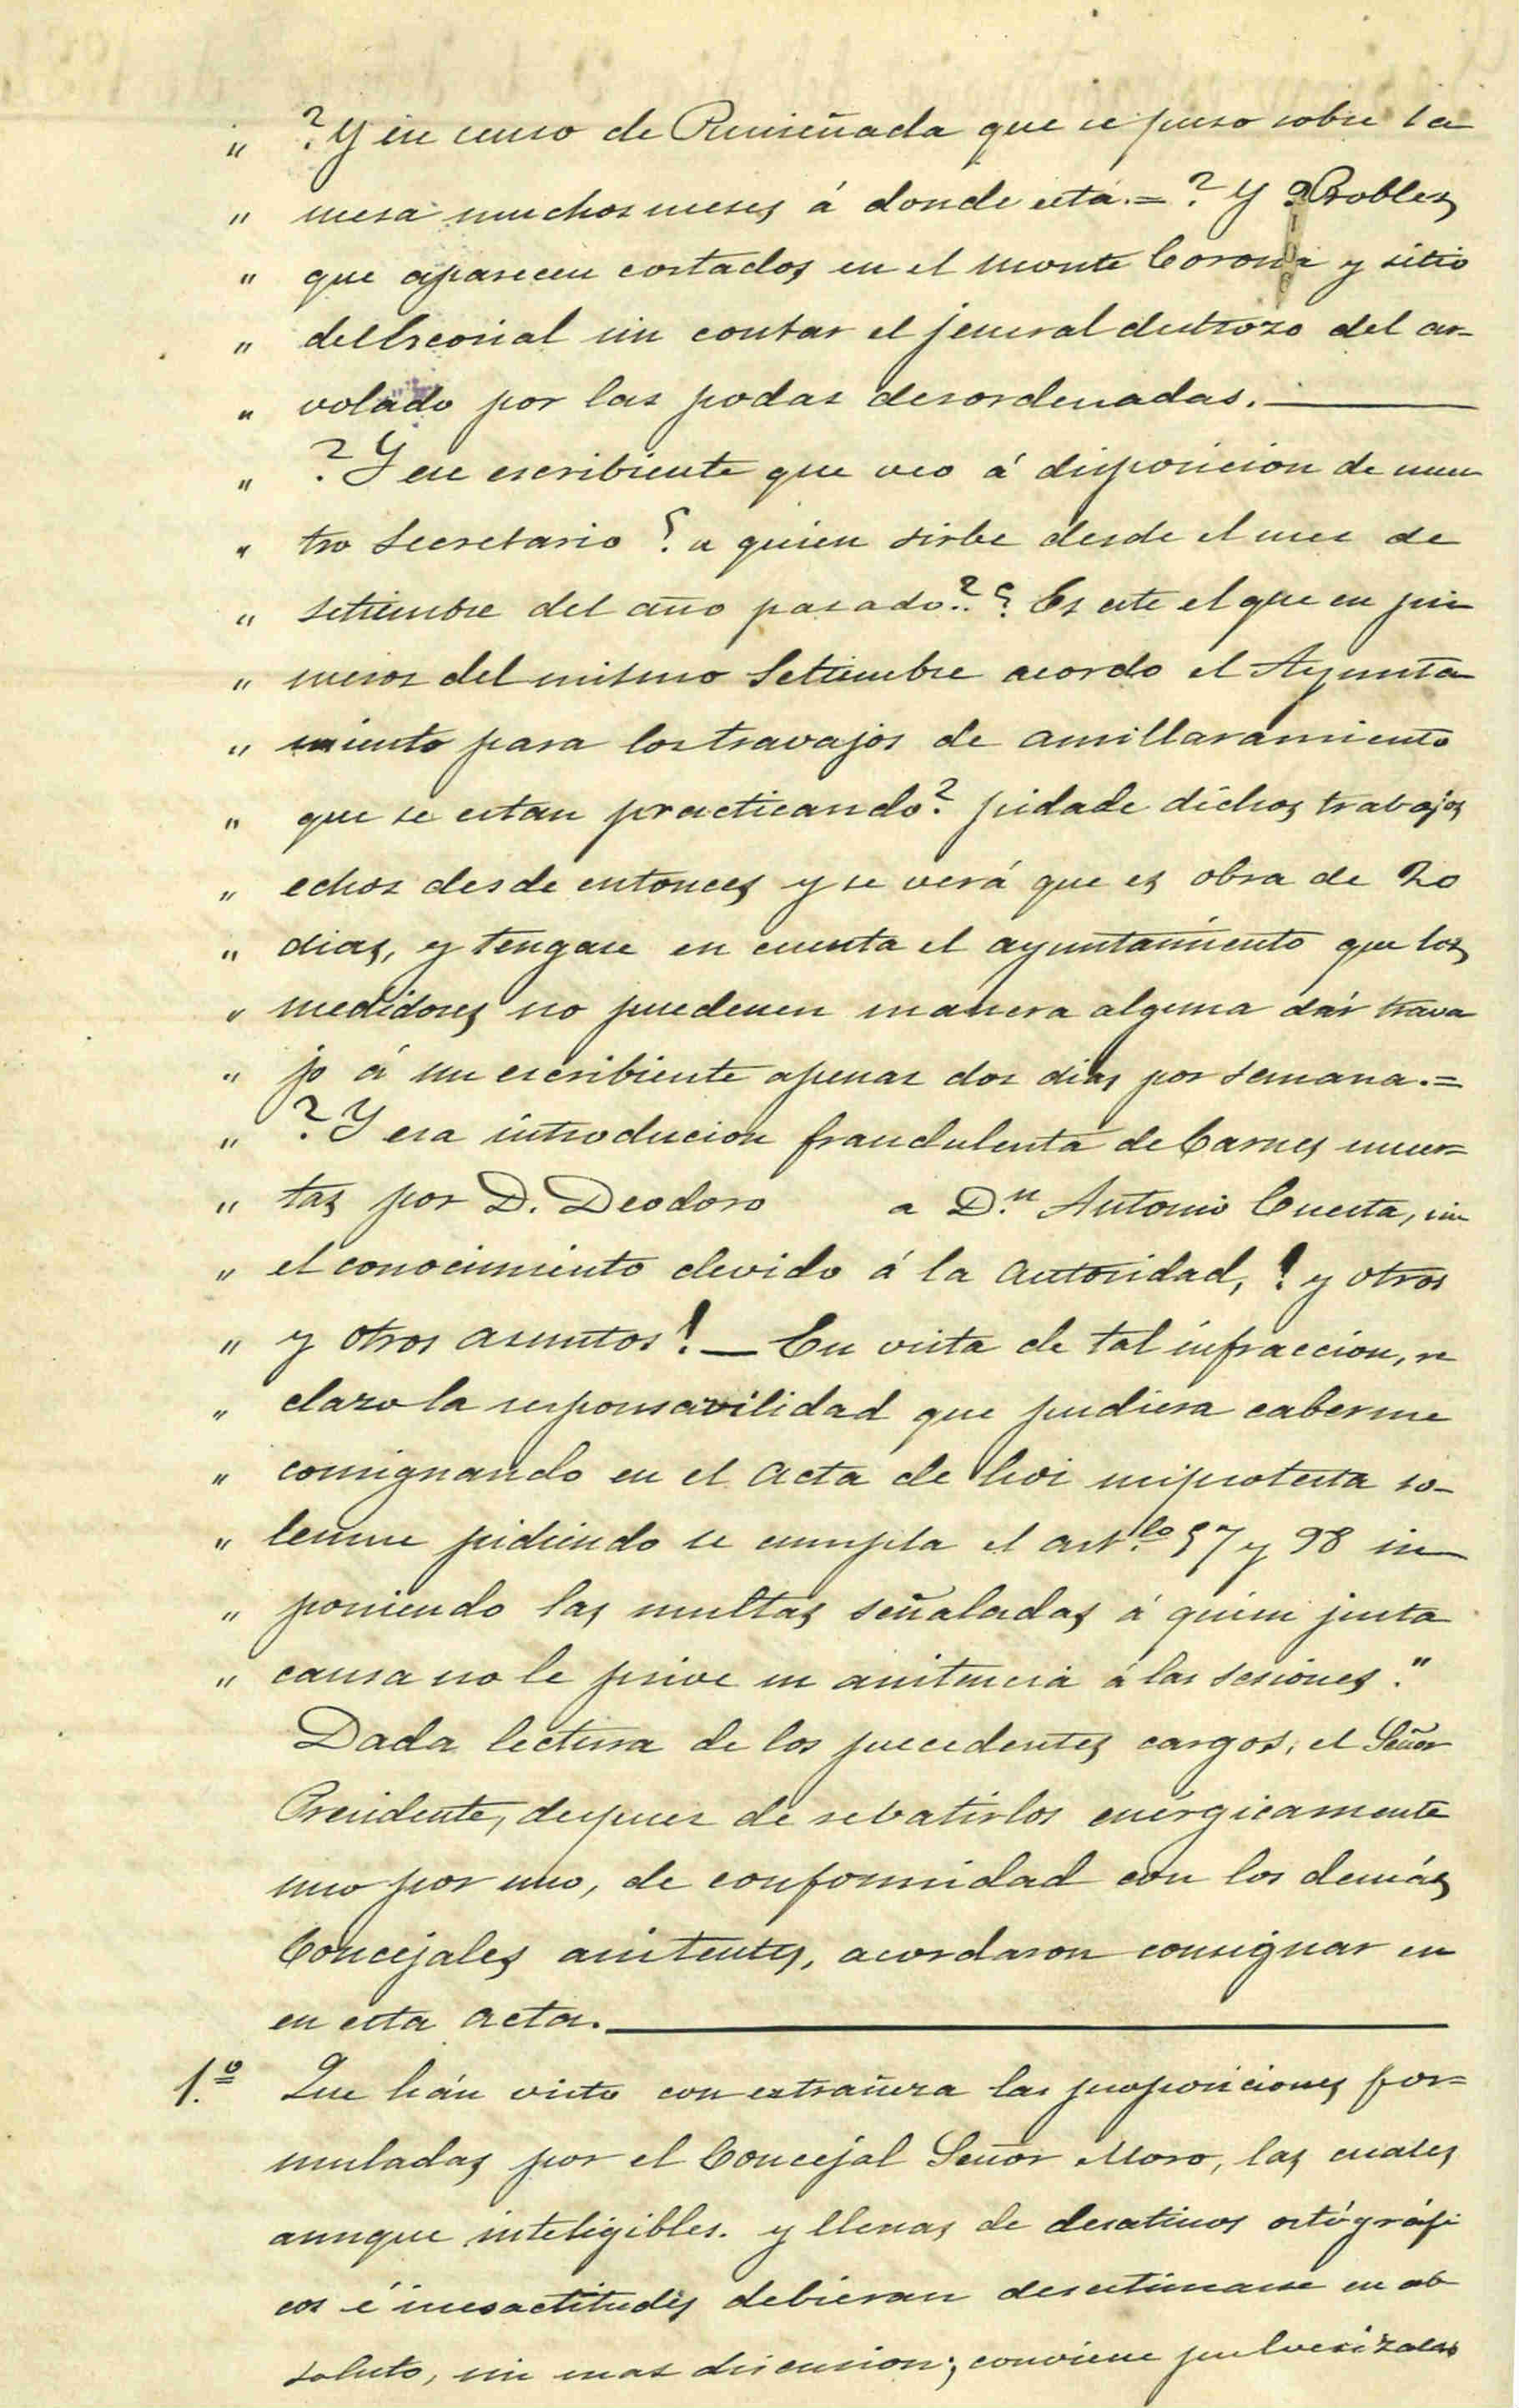 " ?Y ese censo de Ruiseñada que se puso sobre la
" mesa muchos meses á donde está.=? Y 9 Robles
" que aparecen cortados en el monte Corona y sitio
" del Escorial sin contar el jeneral destrozo del ar-
" volado por las podas desordenadas.
" ?Y ese escribiente que veo á disposicion de nues
" tro Secretario ? a quien sirbe desde el mes de
" setiembre del año pasado?? Es este el que en pri
" meros del mismo Setiembre acordo el Ayunta
" miento para los travajos de amillaramiento
" que se estan practicando? pidade dichos trabajos
" echos desde entonces y se verá que es obra de 20
" dias, y tengase en cuenta el ayuntamiento que los
" medidores no pueden en manera alguna dár trava
" jo á un escribiente apenas dos dias por semana.=
" ?Y esa introducion fraudulenta de Carnes muer=
" tas por D. Deodoro a D.n Antonio Cuesta, sin
" el conocimiento devido á la autoridad, ! y otros
" y otros asuntos! — En vista de tal infraccion, re
" clazo la responsavilidad que pudiera caberme
" consignando en el acta de hoi mi protesta so-
" lemne pidiendo se cumpla el art.lo 97 y 98 im
" poniendo las multas señaladas á quien justa
" causa no le prive su asistencia á las sesiones."
Dada lectura de los precedentes cargos, el Señor
Presidente, despues de rebatirlos enérgicamente
uno por uno, de conformidad con los demás
Concejales asistentes, acordaron consignar en
en esta acta.
1.º Que hán visto con estrañeza las proposiciones for=
muladas por el Concejal Señor Moro, las cuales
aunque inteligibles. y llenas de desatinos ortógráfi
cos é inesactitudes debieran desestimarse en ab
soluto, sin mas discusion; conviene pulverizarlas